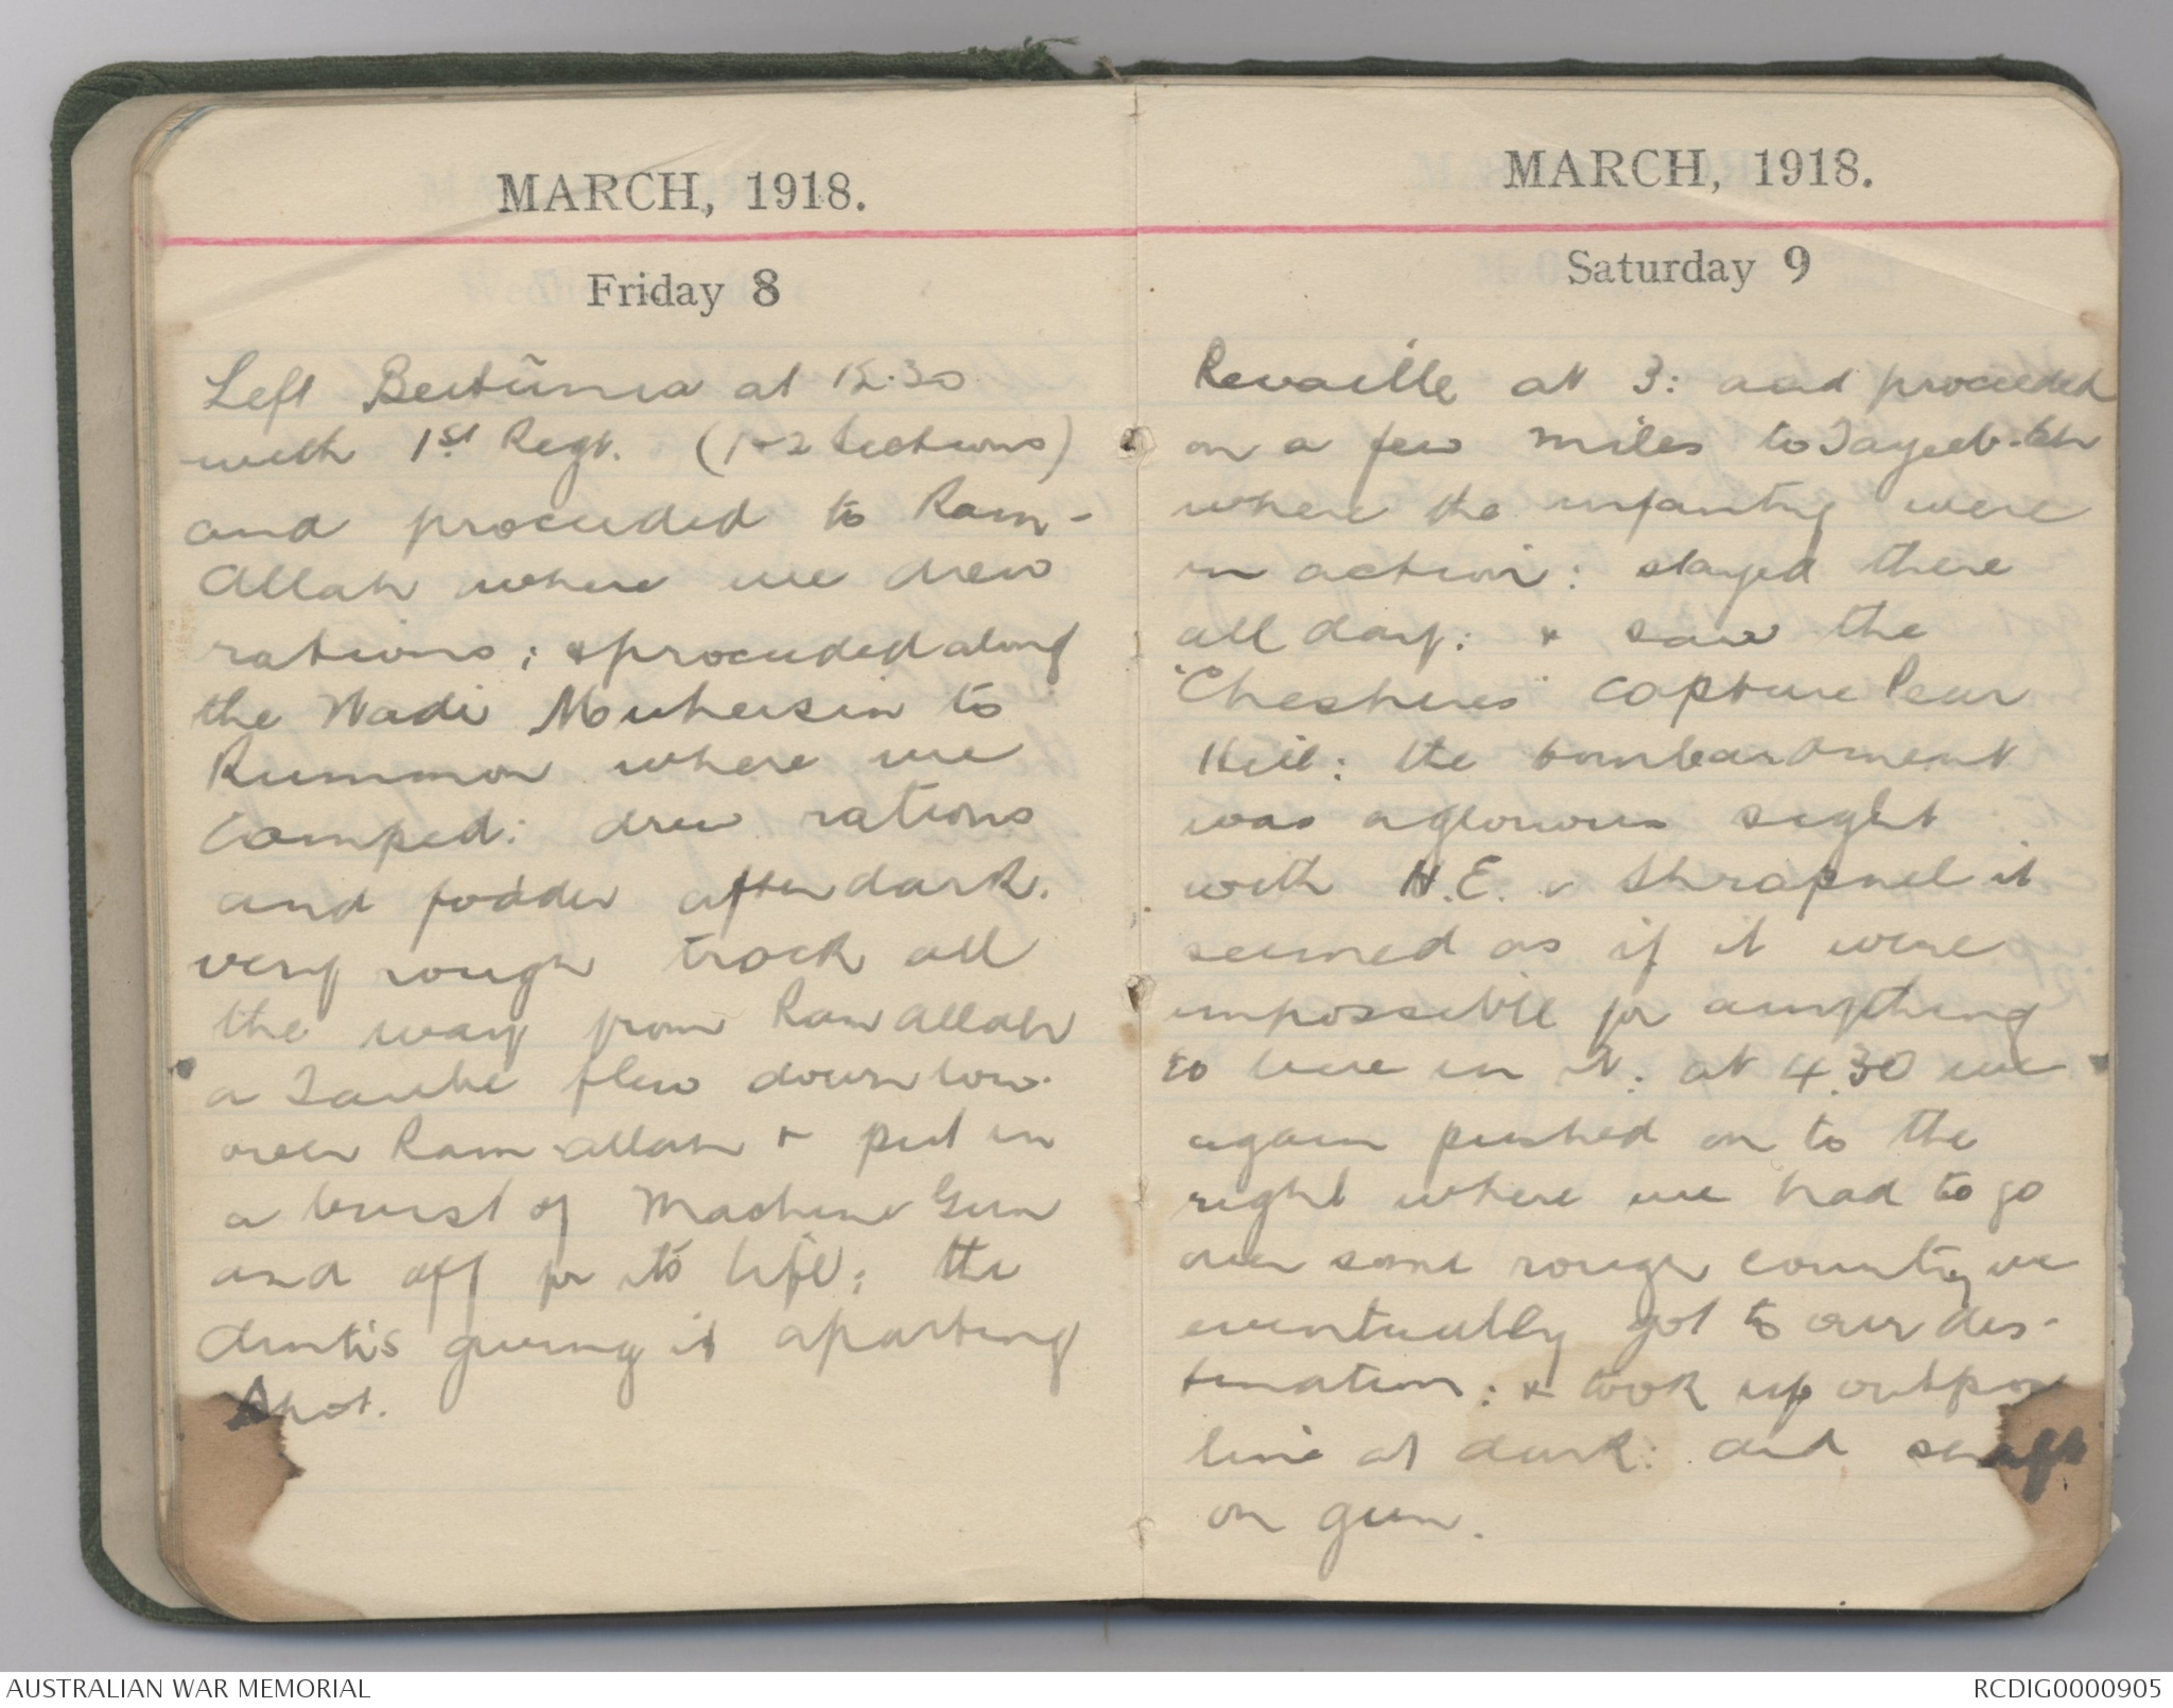 MARCH, 1918.
Friday 8
Left Beitūnia at 12.30
with 1st Regt. (1 & 2 Sections)
and proceeded to Ram-
Allah where we drew
rations; & proceeded along
the Wadi Muheisin to
Rummon where we
camped: drew rations
and fodder after dark.
very rough track all
the way from Ram allah
a Taube flew down low
over Ram-allah & put in
a burst of Machine Gun
and off for its life; the
giving it a parting
shot.
MARCH, 1918.
Saturday 9
Revaille at 3: and proceeded
on a few miles to Tayeeb-eh
where the infantry were
in action: stayed there
all day: & saw the
"Cheshires" capture Pear
Hill: the bombardment
was a glorious sight
with H.E. & Shrapnel it
seemed as if it were
impossible for anything
to live in it: at 4.30 we
again pushed on to the
right where we had to go
over some rough country we
eventually got to our des-
tination: & took up outpost
line at dark: and
on gun.
AUSTRALIAN WAR MEMORIAL
RCDIG0000905